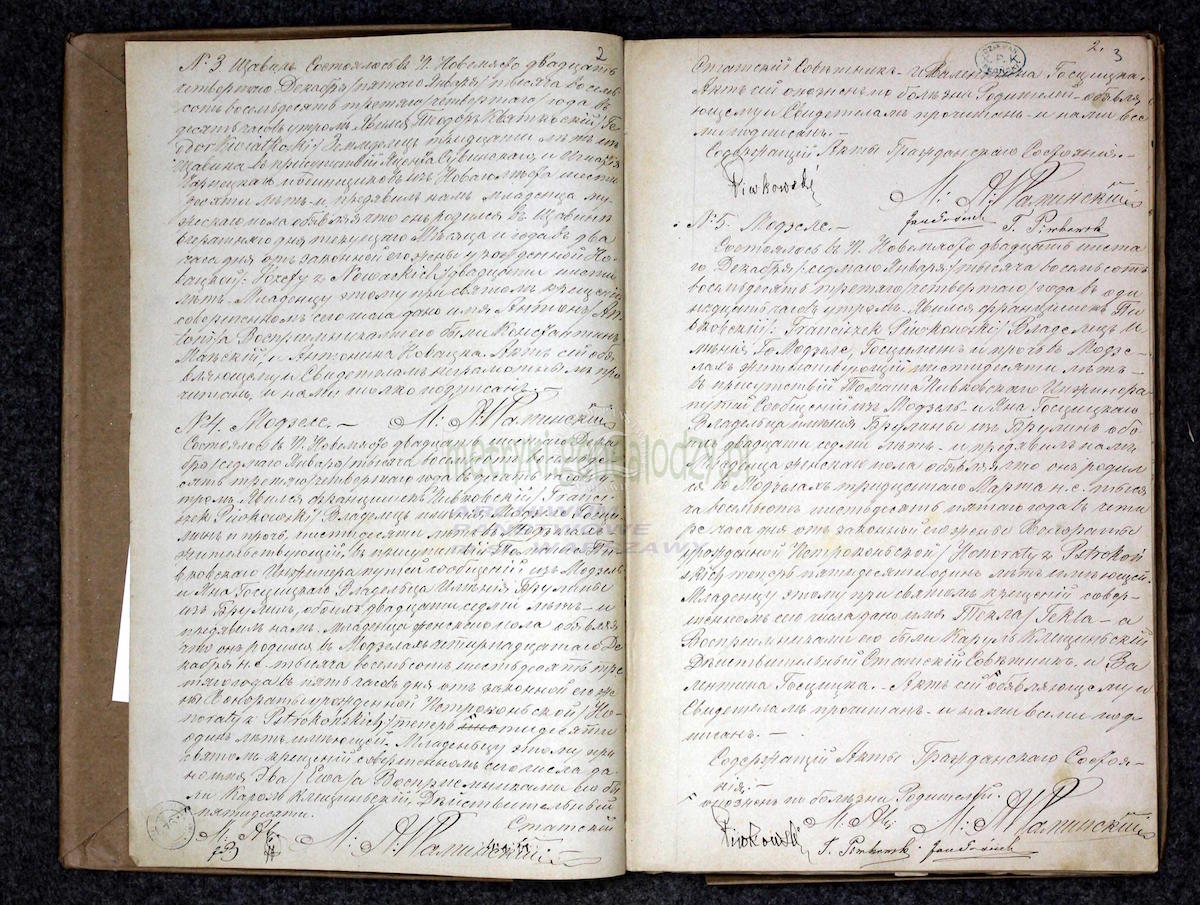 2
№ 3 Щавинъ Состоялось въ П. Новемясто двадцать
четвертаго Декабря /пятаго Января/ тысяча восемь
сотъ восемьдесятъ третьяго /четвертаго/ года въ
десять часовъ утромъ. Явился Квятковскій /Teo
dor Kwiatkoski/ Земледѣлецъ тридцати лѣтъ изъ
Щавина въ присутствіи и
десяти лѣтъ и предъявилъ намъ младенца му
жескаго пола объявляя что онъ родился въ Щавинѣ
вчерашняго дня текущаго Мѣсяца и года въ два
часа дня отъ законной его жены урожденной Но
вацкой /: Józefy z Nowackich/ двадцати шести
лѣтъ. Младенцу этому при святомъ крещеніи
совершенномъ сего числа дано имя Антонъ An
toni/ а Воспріемниками его были Константинъ
и Антонина Новацка. Актъ сей объя
вляющему и Свидѣтелямъ неграмотнымъ про
читанъ, и нами только подписанъ.
№ 4. Модзеле.—
Состоялось въ П. Новемясто двадцать шестаго Дека
бря /седмаго Января/ тысяча восемьсотъ восемьде
сятъ третьяго /четвертаго/ года въ десять часовъ у
тромъ. Явился Францишекъ Пивковскій /Franci
szek Piwkowski/ Владѣлецъ имѣнія Госци
минъ и прочъ, шестидесяти лѣтъ въ Модзеляхъ
жительствующій, въ присутствіи Томаша Пи
вковскаго Инженера путей сообщеній изъ Модзель
и Яна Госцицкаго Владѣльца Имѣнія
изъ обоихъ двадцати седми лѣтъ и
предъявилъ намъ младенца женскаго пола объявляя
что онъ родился въ Модзеляхъ четырнадцатаго Де
кабря н.с. тысяча восемьсотъ шестьдесятъ тре
тяго года въ пять часовъ дня отъ законной его же
ны Гонораты урожденной Петроконьской /Ho
noraty z Pstrokońskich/ теперь десяти
одинъ лѣтъ имѣющей. Младенцу этому при
святомъ крещеніи совершенномъ сего числа да
но имя Эва /Ewa/ а Воспріемниками его бы
ли Кароль Клещиньскій, Дѣйствительный
пятидесяти. Статскій
2. 3
Статскій Совѣтникъ и Валентина Госцицка.
Актъ сей опозненъ по болѣзни Родителей объявля
ющему и Свидѣтелямъ прочитанъ и нами все
ми подписанъ.—
Содержащій Акты Гражданскаго Состоянія.—
Piwkowski
№ 5. Модзеле.—
Состоялось въ П. Новемясто двадцать шеста
го Декабря /седмаго Января/ тысяча восемьсотъ
восемьдесятъ третьяго /четвертаго/ года въ оди
надцать часовъ утромъ. Явился Францишекъ Пи
вковскій /: Franciszek Piwkowski/ Владѣлецъ И
мѣнія Модзеле, Госциминъ и прочъ въ Модзе
ляхъ жительствующій шестидесяти лѣтъ—
въ присутствіи Томаша Пивковскаго Инженера
путей Сообщеній изъ Модзель и Яна Госцицкаго
Владѣльца имѣнія изъ обо
ихъ двадцати седми лѣтъ— и предъявилъ намъ
Младенца женскаго пола объявляя что онъ родил
ся въ Модзеляхъ тридцатаго Марта н.с. тыся
ча восемьсотъ шестьдесятъ пятаго года въ четы
ре часа дня отъ законной его жены Гонораты
урожденной Петроконьской /Honoraty z Pstrokoń
skich теперь пятьдесятъ одинъ лѣтъ имѣющей.
Младенцу этому при святомъ крещеніи совер-
шенномъ сего числа дано имя Текля /Tekla— а
Воспріемниками его были Кароль Клещиньскій
Дѣйствительный Статскій Совѣтникъ и Ва
лентина Госцицка.— Актъ сей объявляющему и
Свидѣтелямъ прочитанъ— и нами всеми подпи
санъ.—
Содержащій Акты Гражданскаго Состоя-
нія.—
опозненъ по болѣзни Родителей.
Piwkowski
metryki.genealodzy.pl
ARCHIWUM
PAŃSTWOWE
M.ST. WARSZAWY